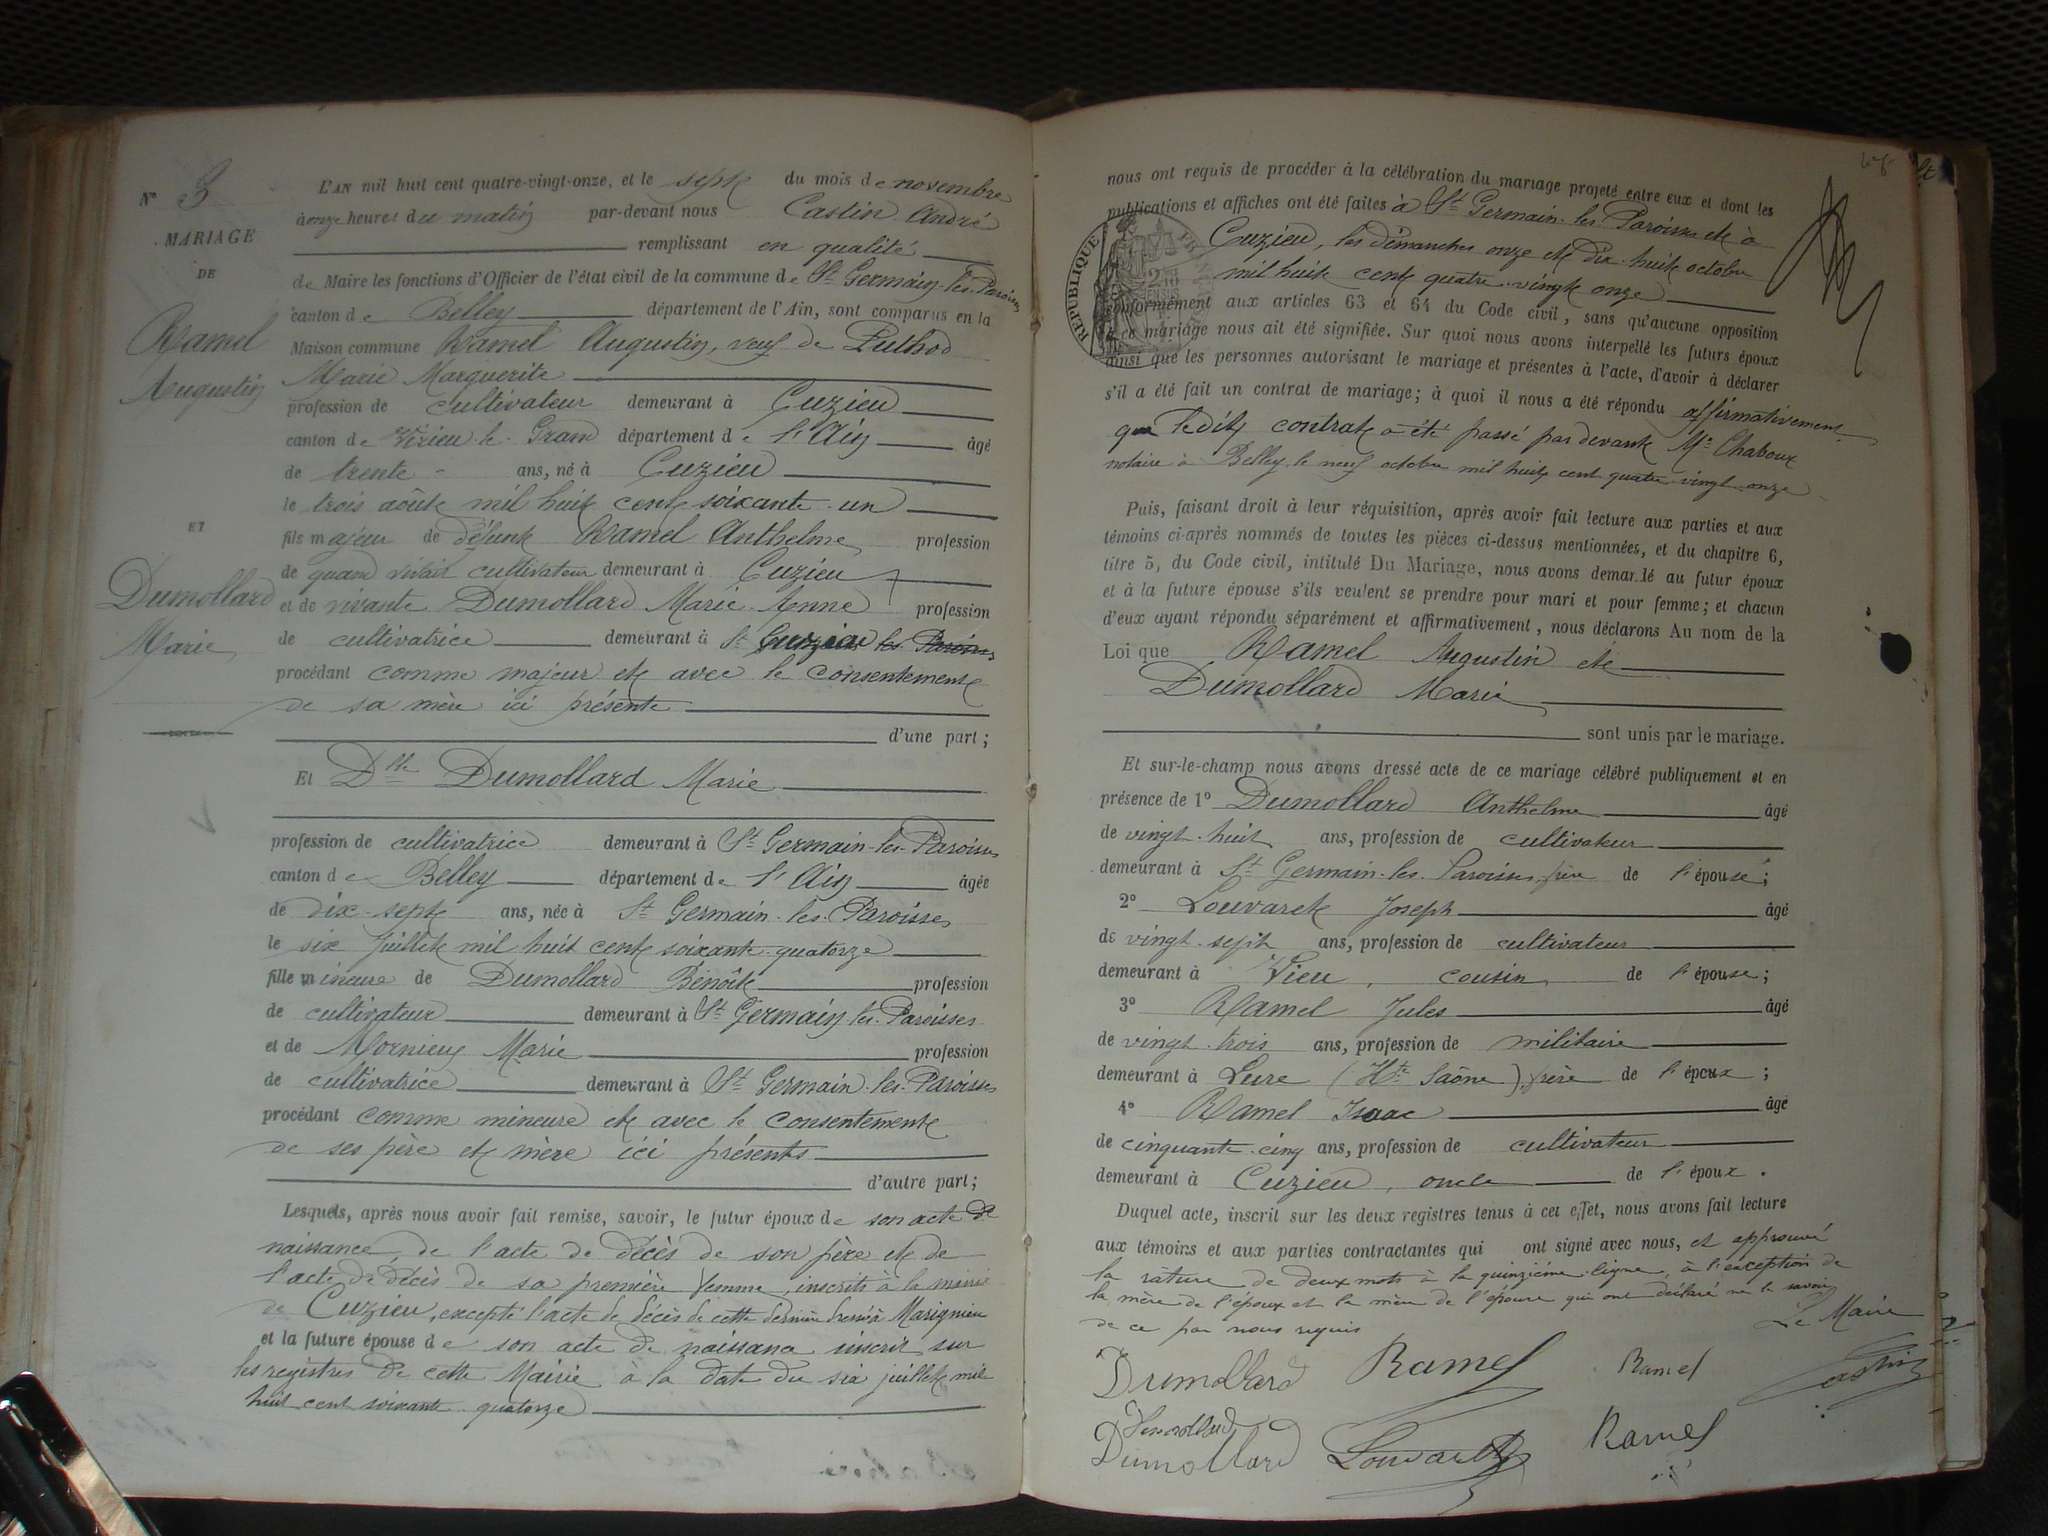 N° 3
MARIAGE
DE
Ramel
Augustin
ET
Dumollard
Marie
L'AN mil huit cent quatre-vingt-onze, et le sept du mois de novembre
à onze heures du matin par-devant nous Castin André
remplissant en qualité
de Maire les fonctions d'Officier de l'état civil de la commune de St Germain-les-Paroisses
canton de Belley département de l'Ain, sont comparus en la
Maison commune Ramel Augustin, veuf de Puthod
Marie Marguerite
profession de cultivateur demeurant à Cuzieu
canton de Virieu-le-Grand département de l'Ain âgé
de trente ans, né à Cuzieu
le trois août mil huit cent soixante-un
fils majeur de défunt Ramel Anthelme profession
de quand vivait cultivateur demeurant à Cuzieu
et de vivante Dumollard Marie-Anne profession
de cultivatrice demeurant à St Cuzieu les Paroisses
procédant comme majeur et avec le consentement
de sa mère ici présente
d'une part;
Et Dlle Dumollard Marie
profession de cultivatrice demeurant à St Germain-les-Paroisses
canton de Belley département de l'Ain âgée
de dix-sept ans, née à St Germain-les-Paroisses
le six juillet mil huit cent soixante-quatorze
fille mineure de Dumollard Benoît profession
de cultivateur demeurant à St Germain-les-Paroisses
et de Mornieux Marie profession
de cultivatrice demeurant à St Germain-les-Paroisses
procédant comme mineure et avec le consentement
de ses père et mère ici présents
d'autre part;
Lesquels, après nous avoir fait remise, savoir, le futur époux de son acte de
naissance, de l'acte de décès de son père et de
l'acte de décès de sa première femme, inscrits à la mairie
de Cuzieu, excepté l'acte de décès de cette dernière dressé à Marignieu
et la future épouse de son acte de naissance inscrit sur
les registres de cette Mairie à la date du six juillet mil
huit cent soixante-quatorze
nous ont requis de procéder à la célébration du mariage projeté entre eux et dont les
publications et affiches ont été faites à St Germain-les-Paroisses et à
Cuzieu, les dimanches onze et dix-huit octobre
mil huit cent quatre-vingt-onze
conformément aux articles 63 et 64 du Code civil, sans qu'aucune opposition
à ce mariage nous ait été signifiée. Sur quoi nous avons interpellé les futurs époux
ainsi que les personnes autorisant le mariage et présentes à l'acte, d'avoir à déclarer
s'il a été fait un contrat de mariage; à quoi il nous a été répondu affirmativement
que ledit contrat a été passé par devant Me Chaboux
notaire à Belley le neuf octobre mil huit cent quatre-vingt-onze
RÉPUBLIQUE
Puis, faisant droit à leur réquisition, après avoir fait lecture aux parties et aux
témoins ci-après nommés de toutes les pièces ci-dessus mentionnées, et du chapitre 6,
titre 5, du Code civil, intitulé Du Mariage, nous avons demandé au futur époux
et à la future épouse s'ils veulent se prendre pour mari et pour femme; et chacun
d'eux ayant répondu séparément et affirmativement, nous déclarons Au nom de la
Loi que Ramel Augustin et
Dumollard Marie
sont unis par le mariage.
Et sur-le-champ nous avons dressé acte de ce mariage célébré publiquement et en
présence de 1° Dumollard Anthelme âgé
de vingt-huit ans, profession de cultivateur
demeurant à St Germain-les-Paroisses frère de l'épouse;
2° Louvaret Joseph âgé
de vingt-sept ans, profession de cultivateur
demeurant à Vieu, cousin de l'épouse;
3° Ramel Jules âgé
de vingt-trois ans, profession de militaire
demeurant à Lure (Hte Saône) frère de l'époux;
4° Ramel Isaac âgé
de cinquante-cinq ans, profession de cultivateur
demeurant à Cuzieu, oncle de l'époux.
Duquel acte, inscrit sur les deux registres tenus à cet effet, nous avons fait lecture
aux témoins et aux parties contractantes qui ont signé avec nous, et approuvé
la rature de deux mots à la quinzième ligne, à l'exception de
la mère de l'époux et la mère de l'épouse qui ont déclaré ne le savoir
de ce par nous requis
Le Maire
Dumollard Ramel Ramel Castin
Dumollard
Dumollard Louvaret Ramel